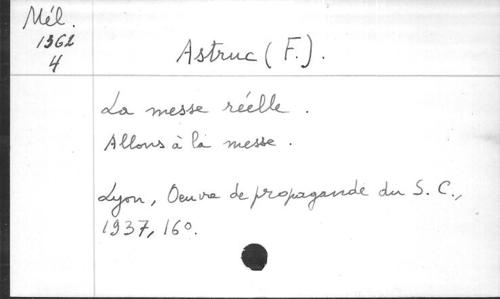 Mél.
1362
4
Astruc (F.).
La messe réelle.
Allons à la messe.
Lyon, Oeuvre de propagande du S. C.,
1937, 16o.